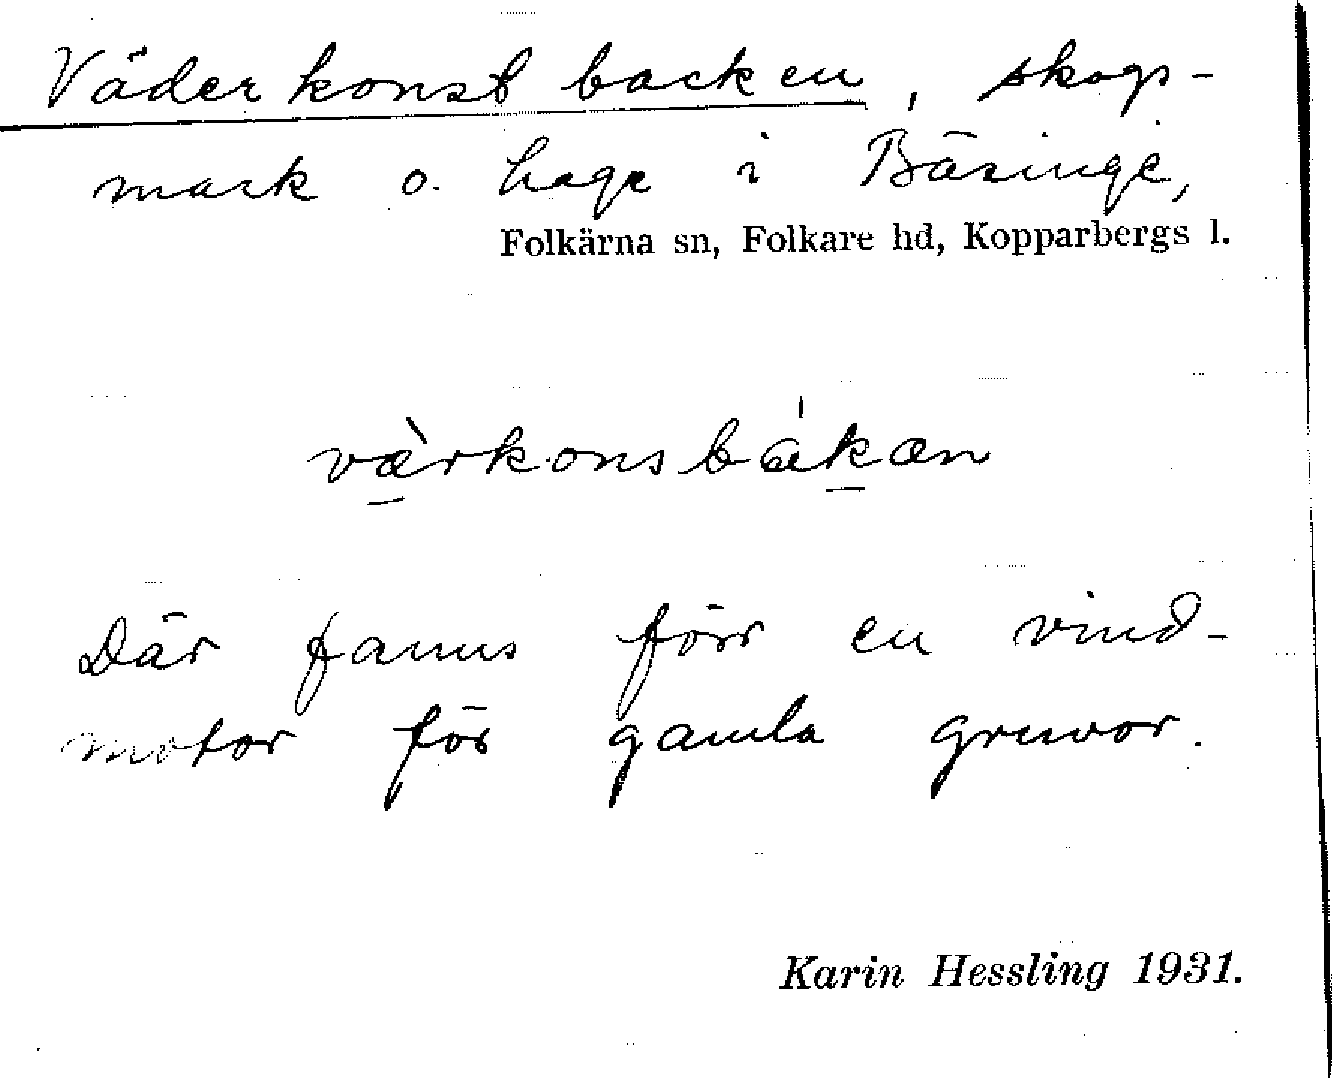 Väderkonstbacken, skogs-
mark o. hage i Bäsinge,
Folkärna sn, Folkare hd, Kopparbergs l.
vàrkonsbákan
Där fanns förr en vind-
motor för gamla gruvor.
Karin Hessling 1931.